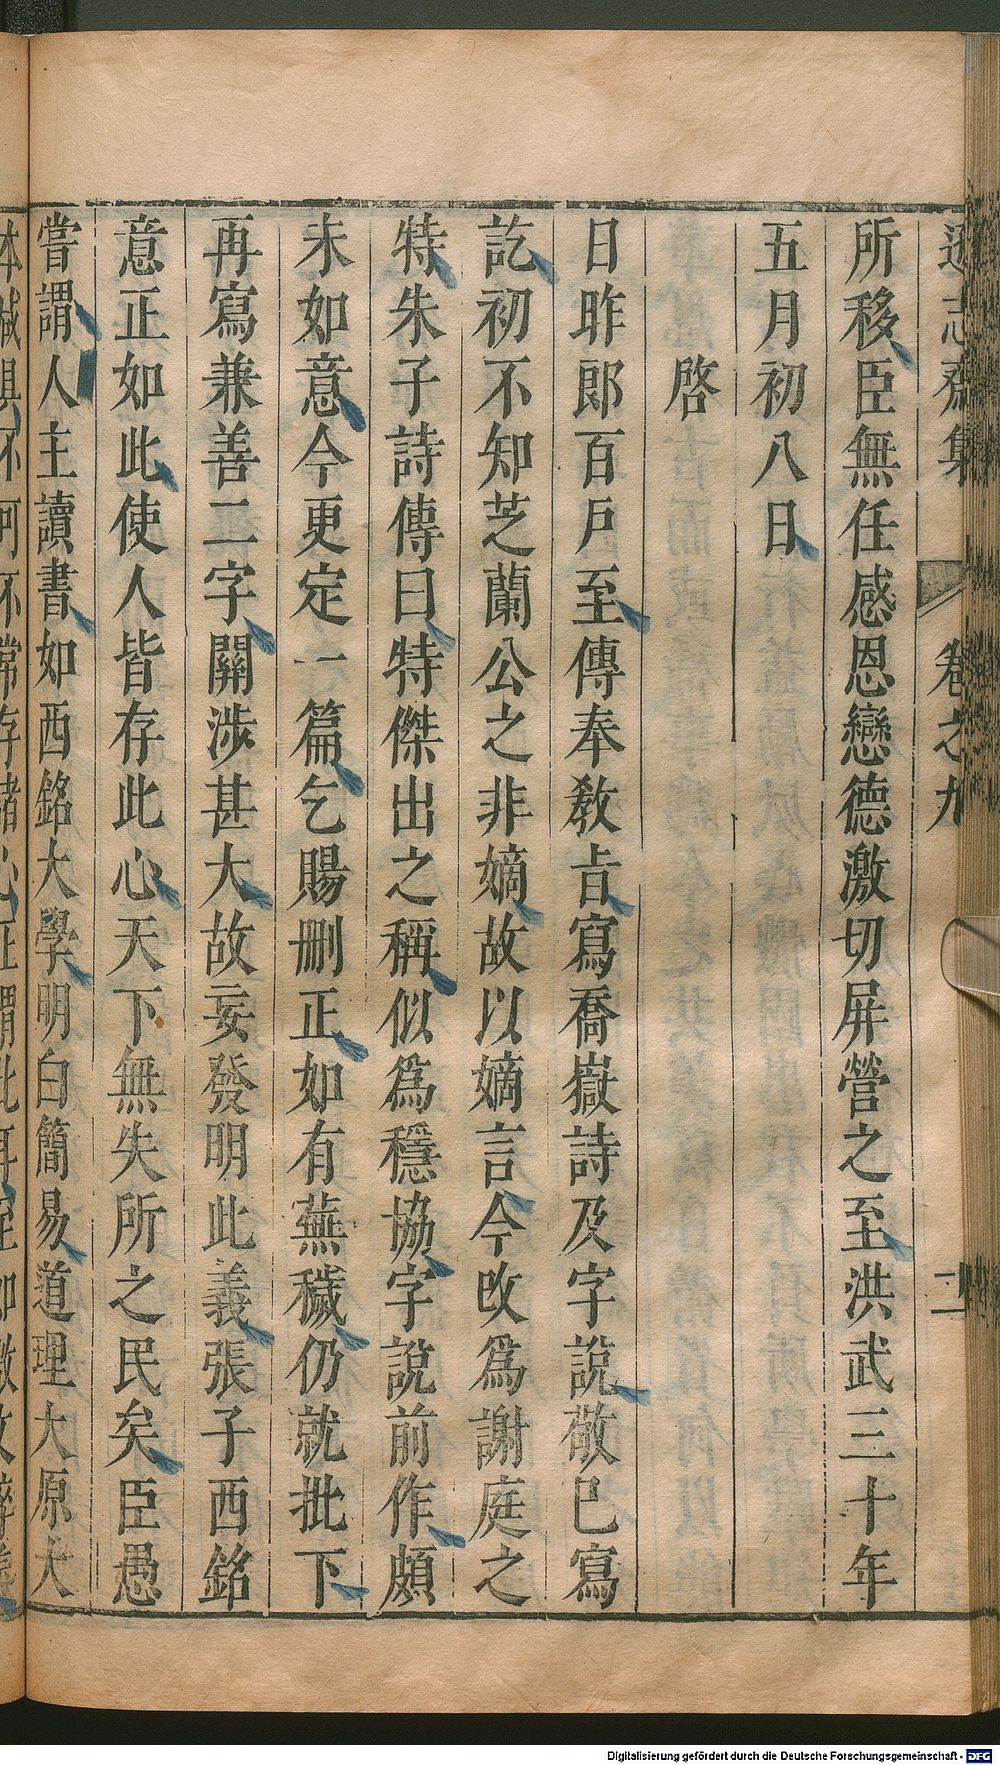 遜志齋集 卷之九 二
所移臣無任感恩戀德激切屏營之至洪武三十年
五月初八日
啓
日昨郎百戶至傳奉敎㫖寫喬嶽詩及字說敬已寫
訖初不知芝蘭公之非嫡故以嫡言今攺爲謝庭之
特朱子詩傳曰特傑出之稱似爲穩協字說前作頗
未如意今更定一篇乞賜刪正如有蕪穢仍就批下
再寫兼善二字關涉甚大故妄發明此義張子西銘
意正如此使人皆存此心天下無失所之民矣臣愚
嘗謂人主讀書如西銘大學明白簡易道理大原大
本緘
Digitalisierung gefördert durch die Deutsche Forschungsgemeinschaft - DFG